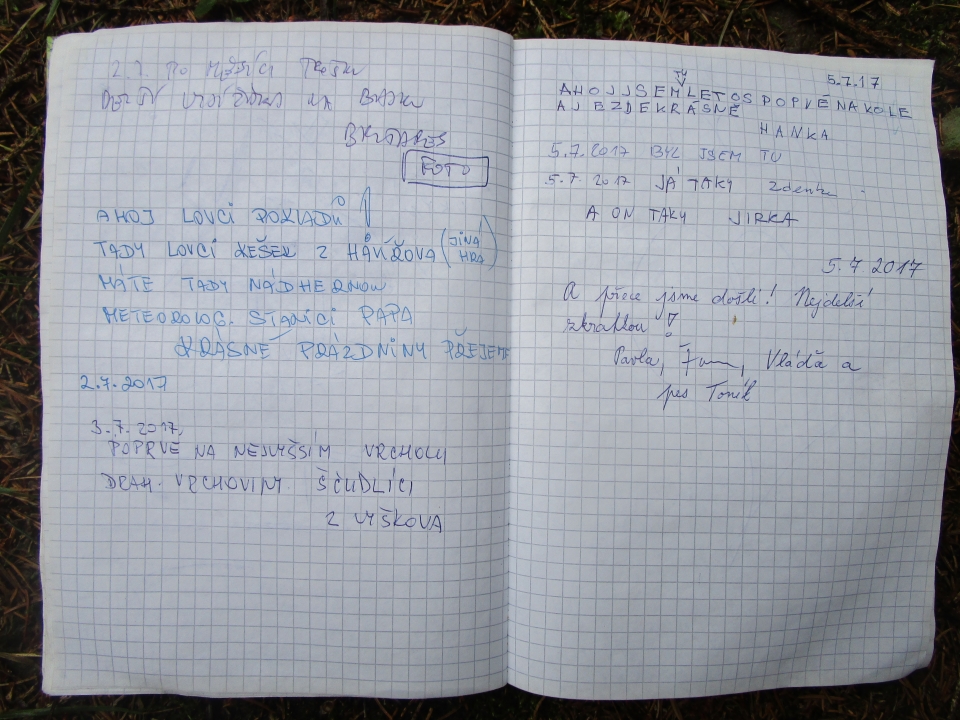 2.7. PO
NA
FOTO
AHOJ LOVCI POKLADŮ!
TADY LOVCI KEŠEK Z HAVÍŘOVA (JINÁ HRA)
MÁTE TADY NÁDHERNOU
METEOROLOG. STANICI PAPA
KRÁSNÉ PRÁZDNINY PŘEJEME
2.7.2017
3.7.2017
POPRVÉ NA NEJVYŠŠÍM VRCHOLU
DRAH. VRCHOVINY. ŠČUDLÍCI
Z VYŠKOVA
5.7.17
TU
AHOJ JSEM LETOS POPVÉ NA KOLE
AJ BEZDEKRÁSNĚ
HANKA
5.7.2017 BYL JSEM TU
5.7.2017 JÁ TAKY Zdenek
A ON TAKY JIRKA
5.7.2017
A přece jsme došli! Nejdelší
zkratkou!
Pavla, Vláďa a
pes Toník